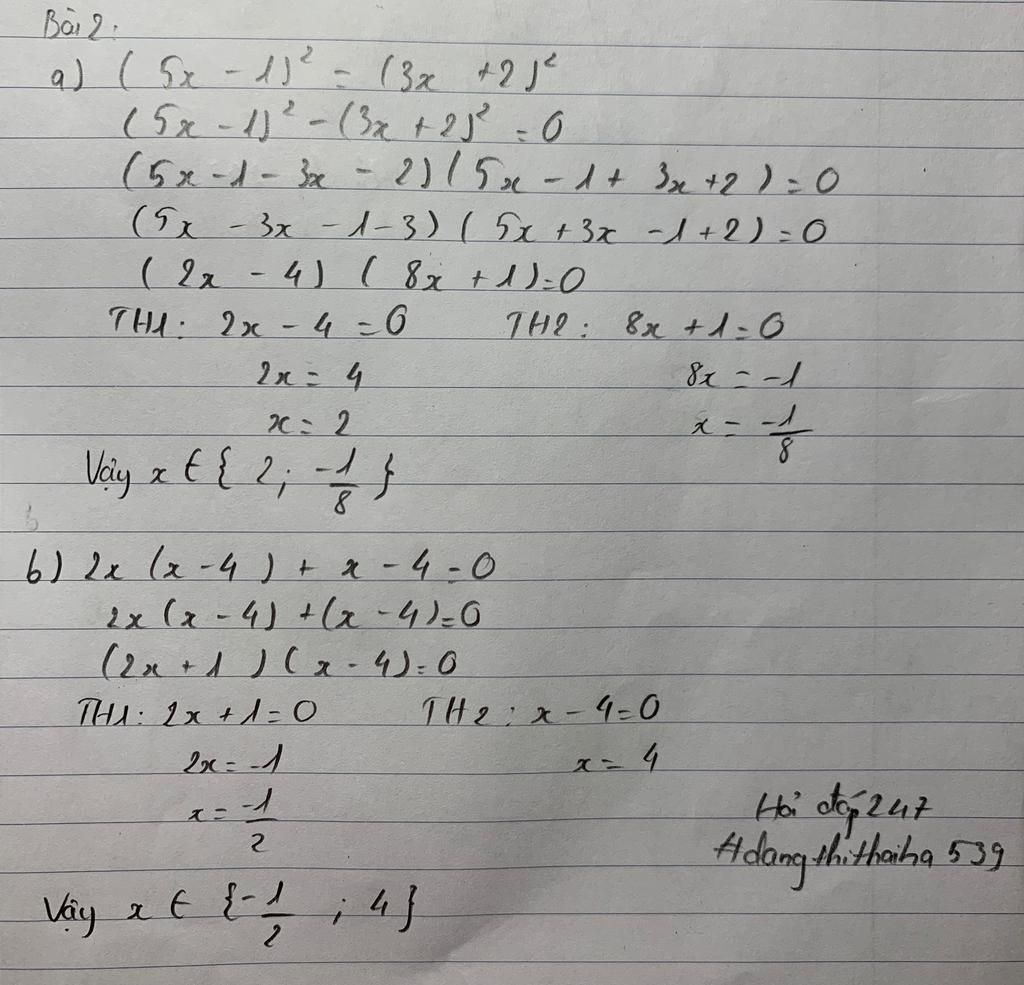 Bài 2:
a) (5x - 1)² = (3x + 2)²
(5x - 1)² - (3x + 2)² = 0
(5x - 1 - 3x - 2)(5x - 1 + 3x + 2) = 0
(5x - 3x - 1 - 3)(5x + 3x - 1 + 2) = 0
(2x - 4)(8x + 1) = 0
TH1: 2x - 4 = 0 TH2: 8x + 1 = 0
2x = 4 8x = -1
x = 2 x = -1/8
Vậy x ∈ {2; -1/8}
b) 2x (x - 4) + x - 4 = 0
2x (x - 4) + (x - 4) = 0
(2x + 1)(x - 4) = 0
TH1: 2x + 1 = 0 TH2: x - 4 = 0
2x = -1 x = 4
x = -1/2
Hỏi đáp 247
#dangthithaiha539
Vậy x ∈ {-1/2; 4}